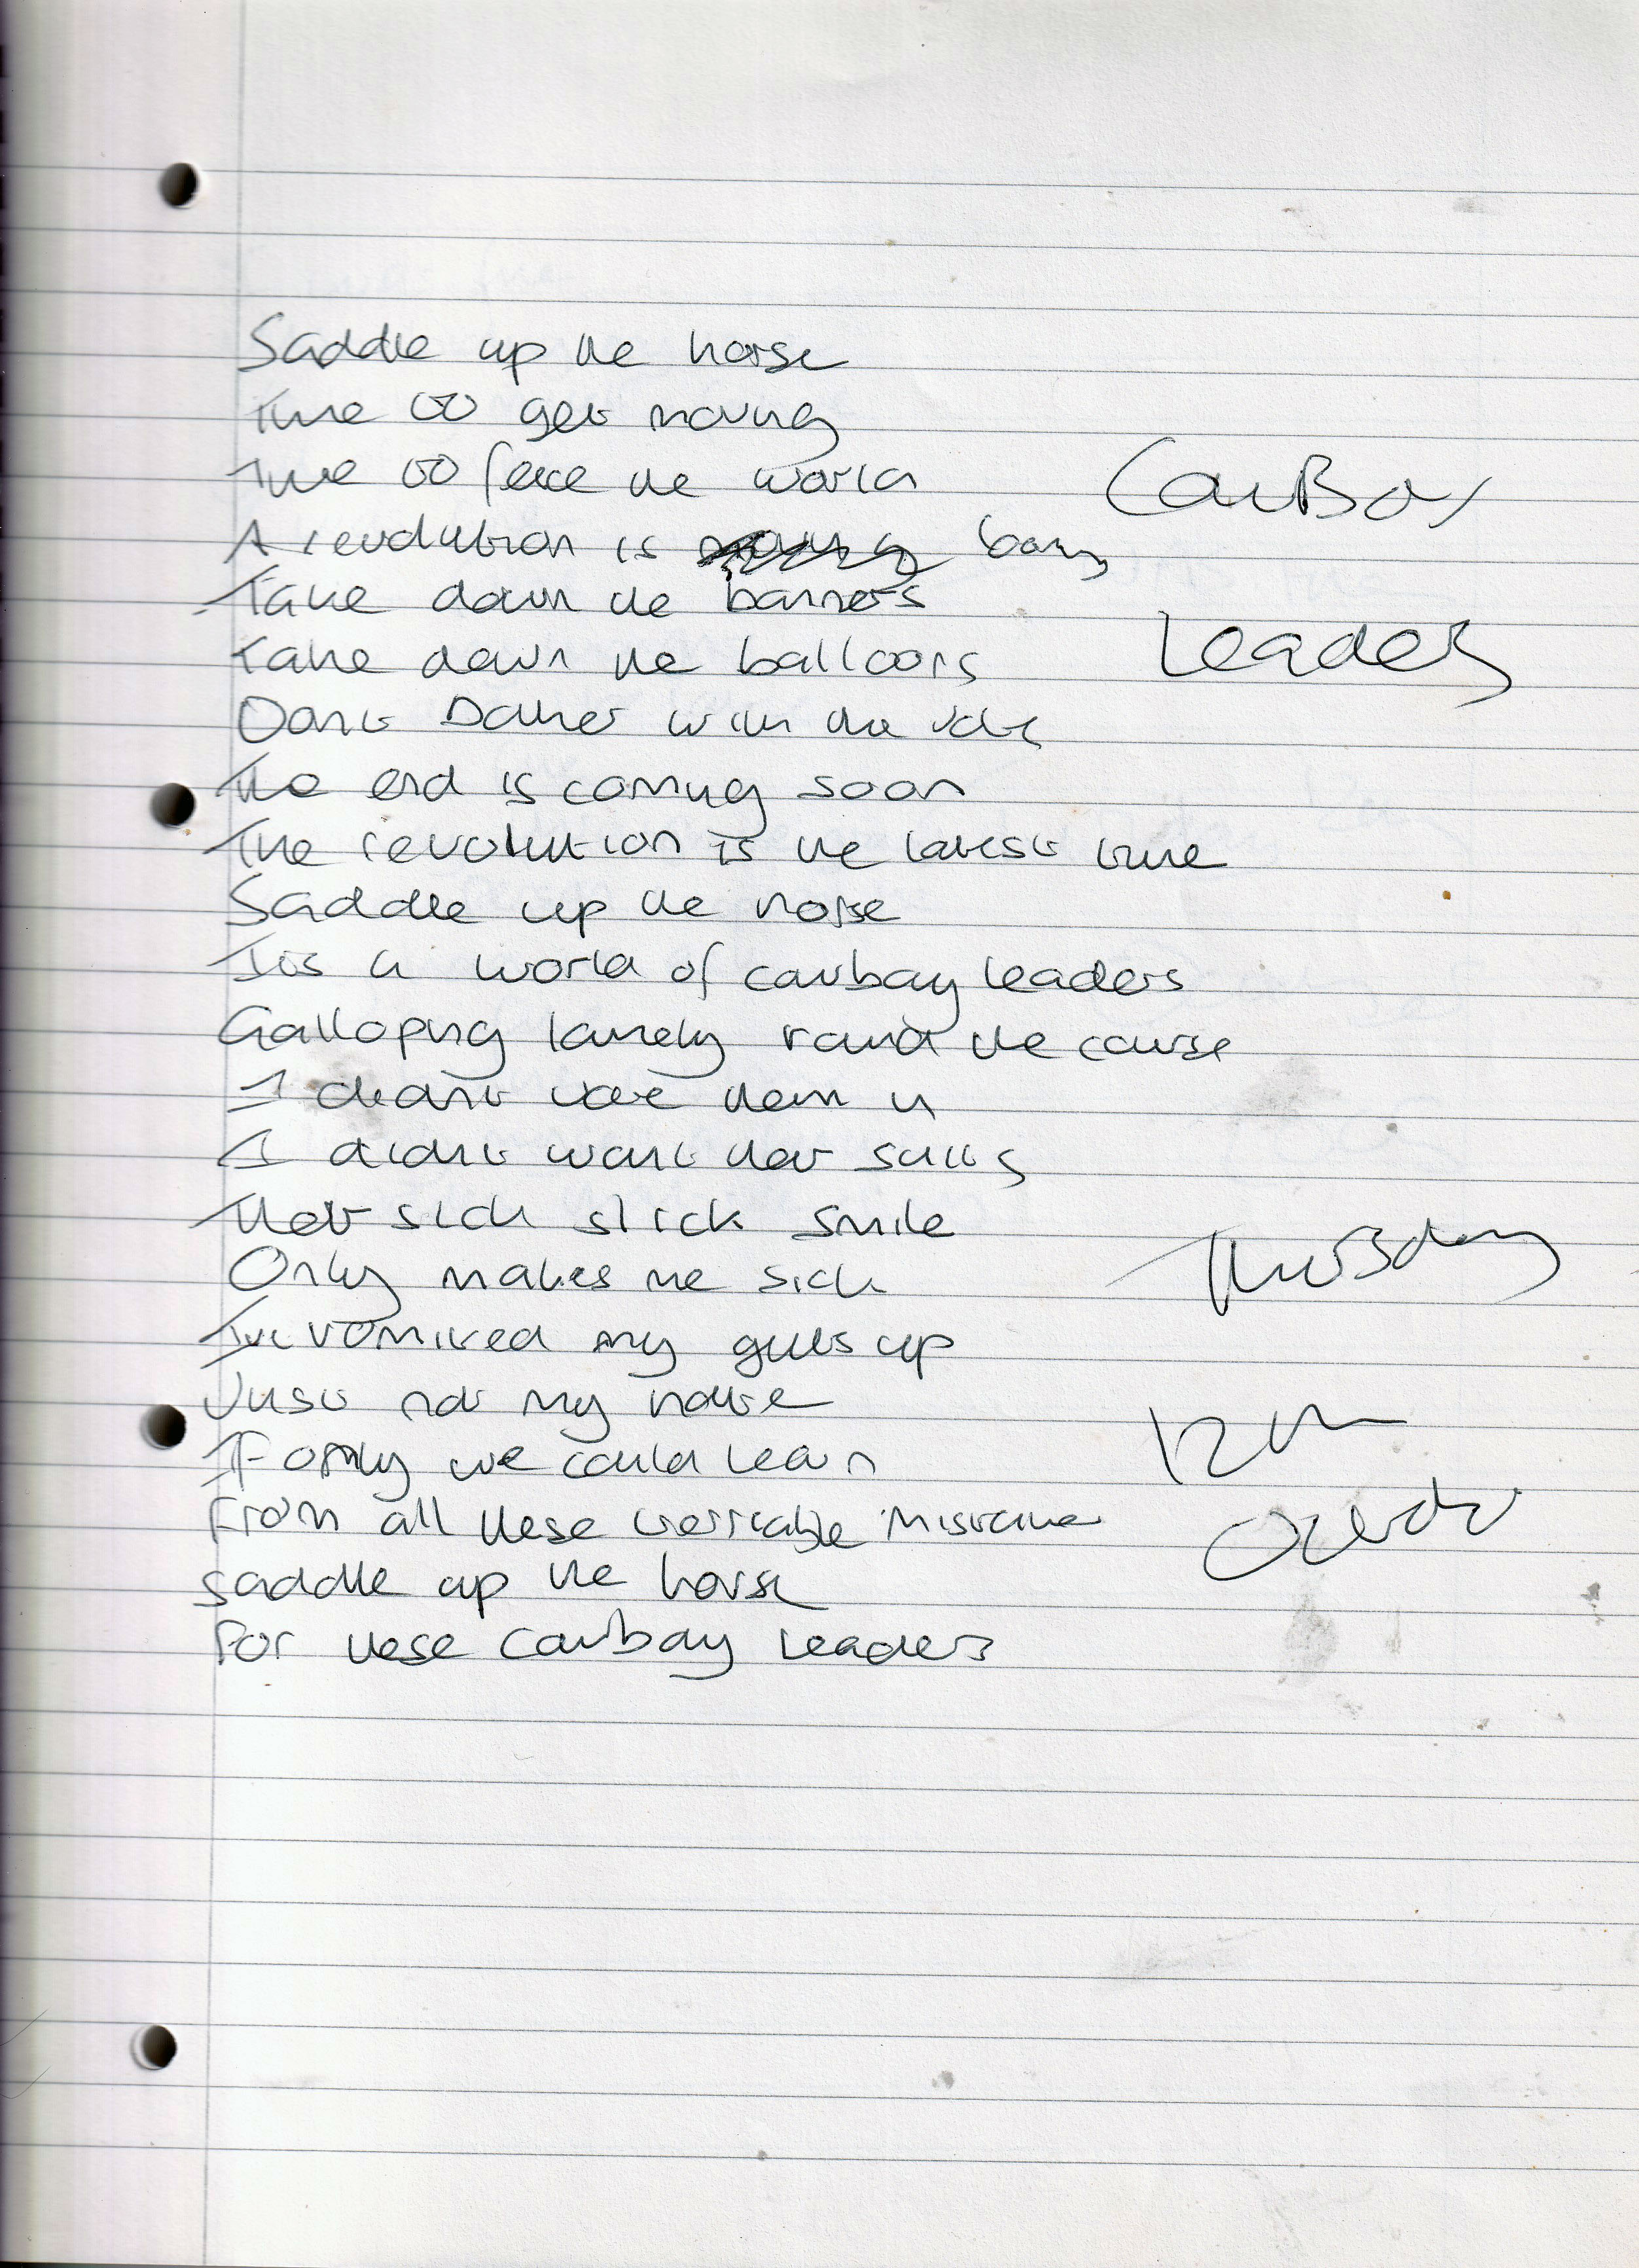 Saddle up the horse
Time to get moving
Time to face the world
CowBoy
A revolution is
Take down the banners
Take down the balloons
Leaders
Dont bother with the vote
The end is coming soon
The revolution is the latest tune
Saddle up the horse
Its a world of cowboy leaders
Galloping lonely round the course
I didnt vote them in
I didnt want their suits
Their sick slick smile
Only makes me sick
Thursday
Ive vomited my guts up
Just not my
12th
If only we could learn
From all these terrible
October
Saddle up the horse
For these cowboy leaders